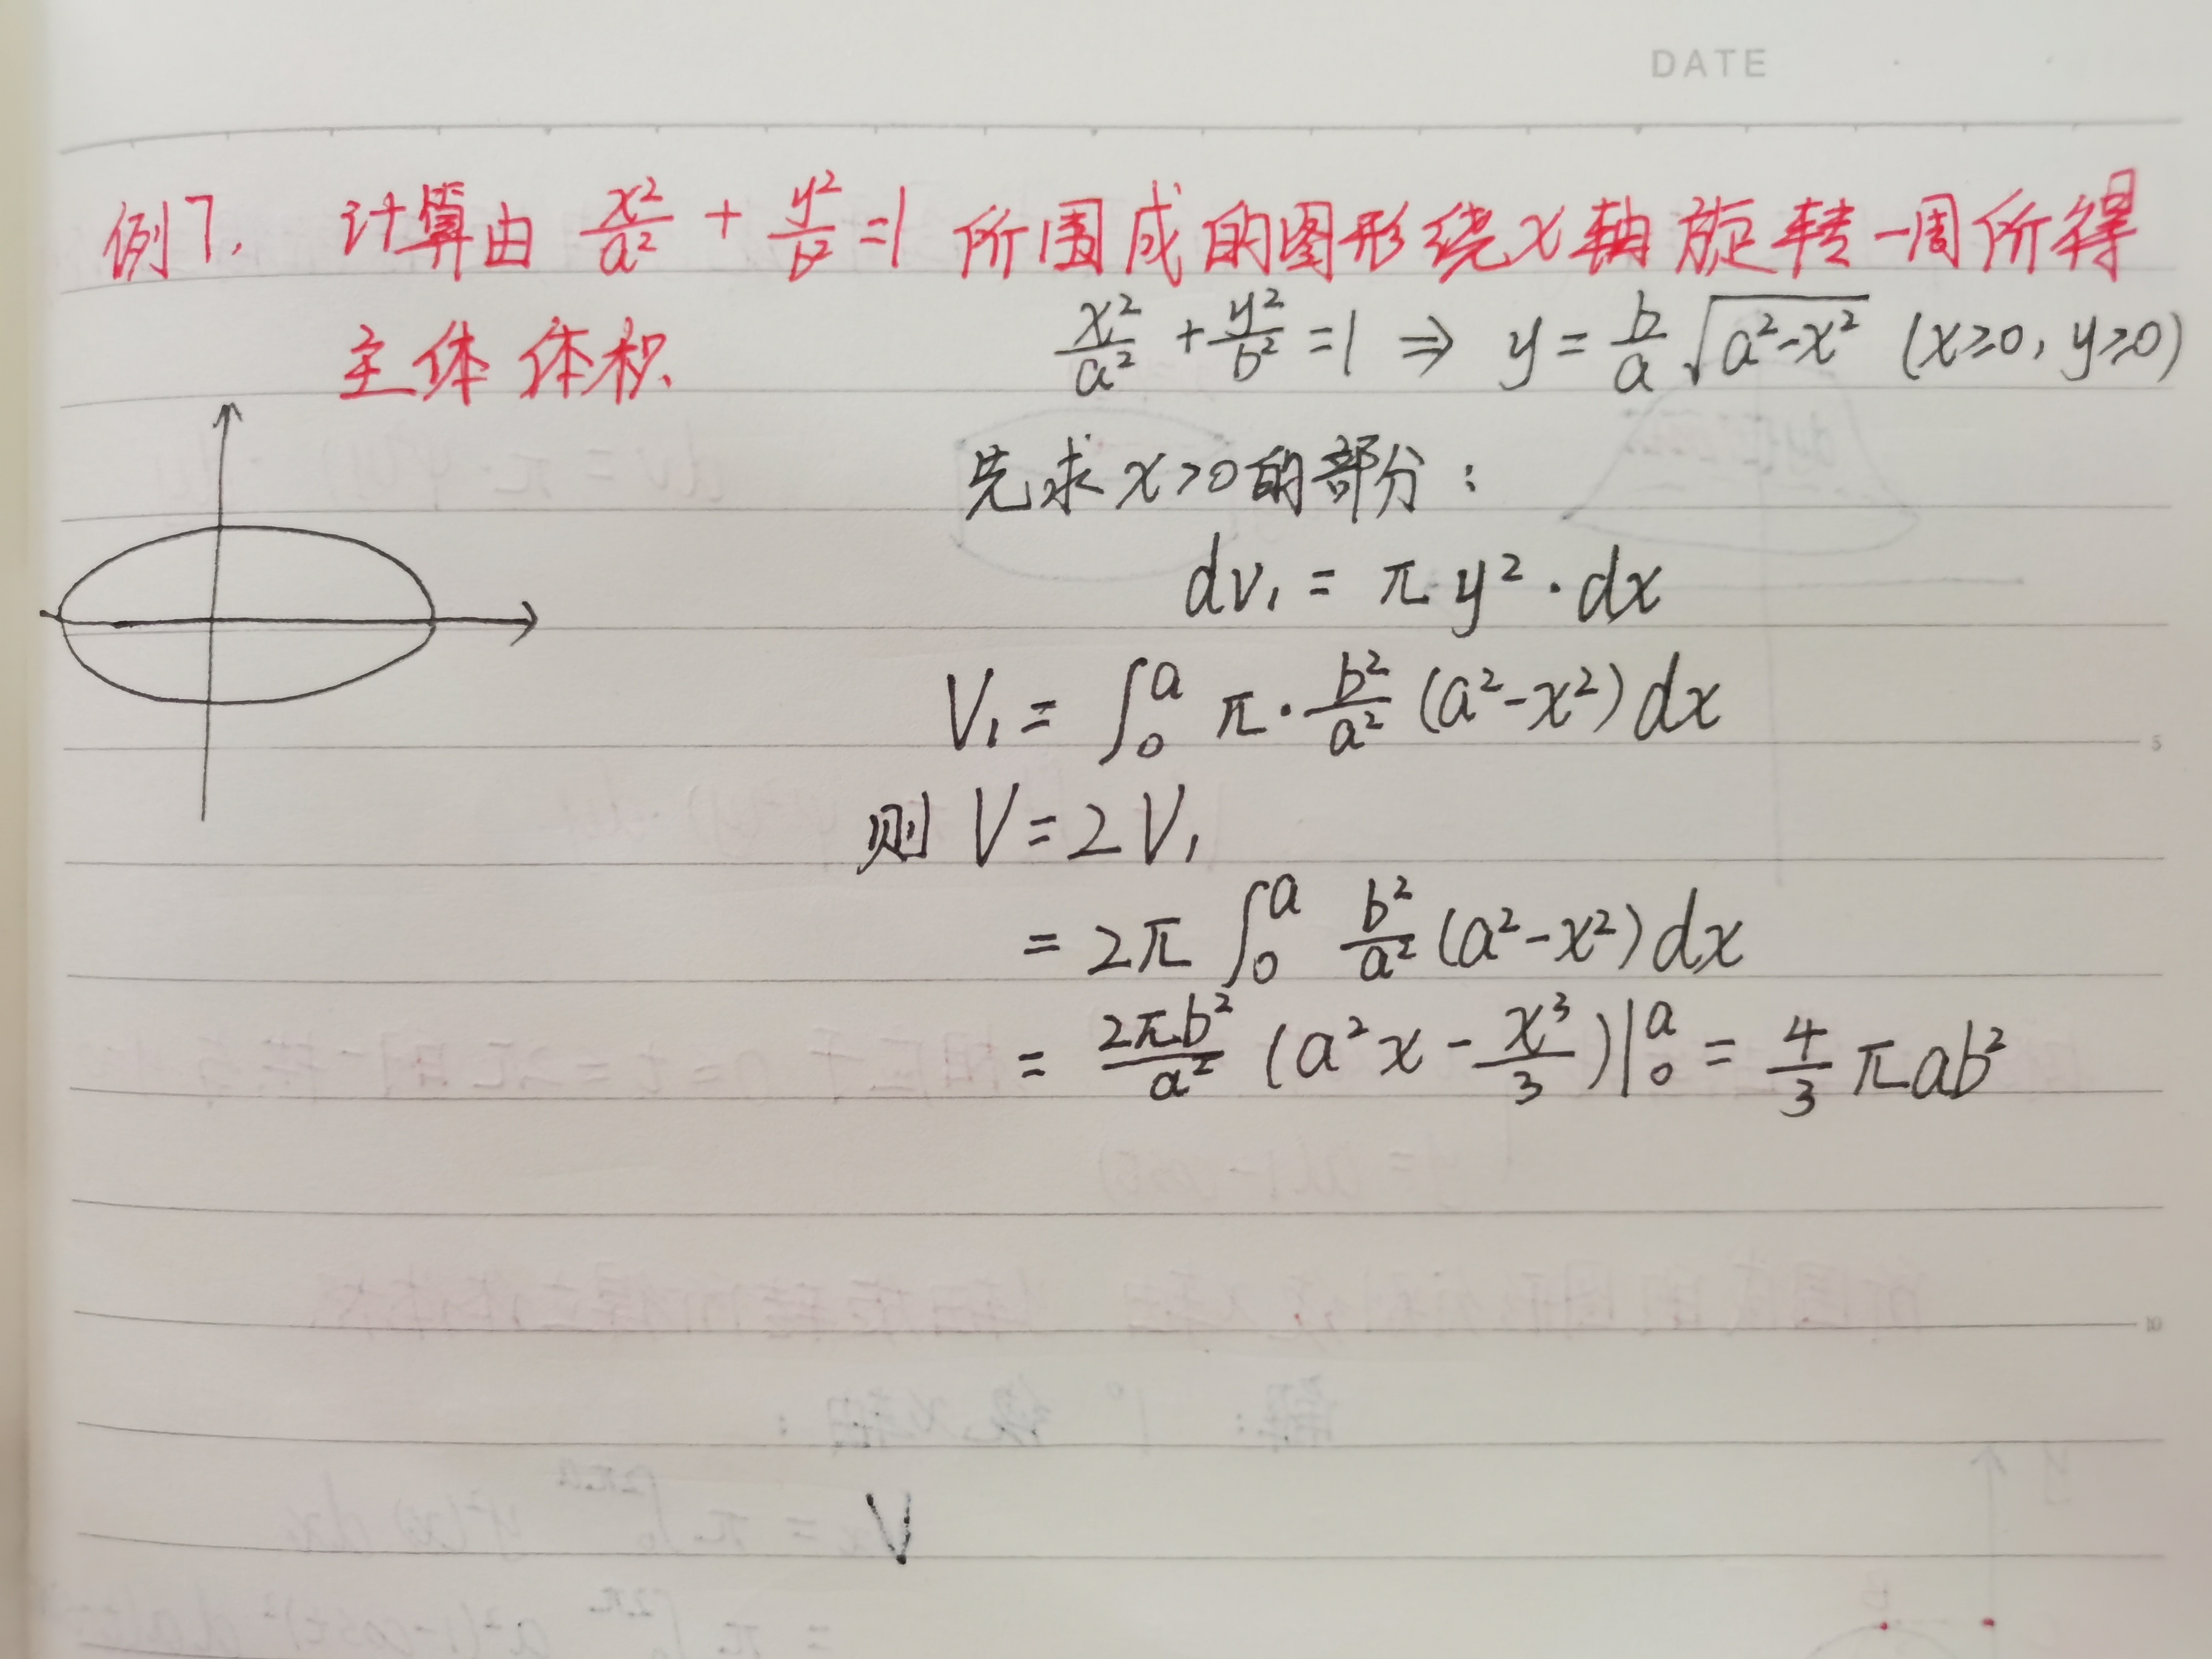 DATE
例7. 计算由 x²/a² + y²/b² =1 所围成的图形绕x轴旋转一周所得
主体体积.
x²/a² + y²/b² =1 ⇒ y = b/a √(a²-x²) (x≥0, y≥0)
先求x>0的部分:
dv₁ = π y² · dx
V₁ = ∫₀ᵃ π · b²/a² (a²-x²) dx
5
则 V = 2V₁
= 2π ∫₀ᵃ b²/a² (a²-x²) dx
= 2πb²/a² (a²x - x³/3)|₀ᵃ = 4/3 πab²
10
V